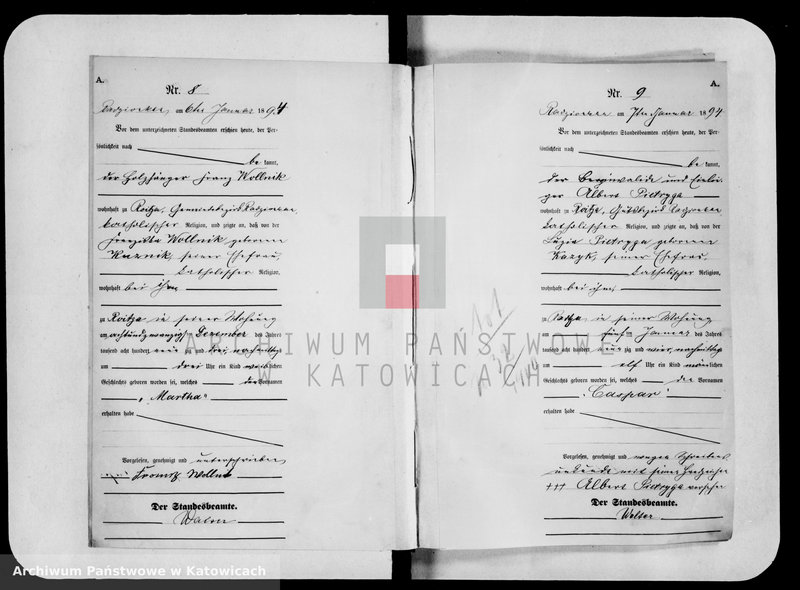 A.
Nr. 8
am 6ten Januar 1894
Vor dem unterzeichneten Standesbeamten erschien heute, der Per-
sönlichkeit nach
be kannt,
der Holzhänger Franz Wollnik
wohnhaft zu
katholischer Religion, und zeigte an, daß von der
Franziska Wollnik geborene
seiner Ehefrau,
katholischer Religion,
wohnhaft bei ihm
zu in seiner Wohnung
am achtundzwanzigsten Dezember des Jahres
tausend acht hundert neun zig und drei nachmittags
um drei Uhr ein Kind weiblichen
Geschlechts geboren worden sei, welches den Vornamen
"Martha"
erhalten habe
Vorgelesen, genehmigt und unterschrieben
Wollnik
Der Standesbeamte.
A.
Nr. 9
am 7ten Januar 1894
Vor dem unterzeichneten Standesbeamten erschien heute, der Per-
sönlichkeit nach
be kannt,
der Berginvalide und
Albert Pietryga
wohnhaft zu
katholischer Religion, und zeigte an, daß von der
Luzia Pietryga geborenen
seiner Ehefrau
katholischer Religion,
wohnhaft bei ihm,
zu in seiner Wohnung
am fünf Januar des Jahres
tausend acht hundert neun zig und vier, nachmittags
um elf Uhr ein Kind männlichen
Geschlechts geboren worden sei, welches den Vornamen
"Caspar"
erhalten habe
Vorgelesen, genehmigt und wegen Schreibens
unkunde mit seinem Handzeichen
+++ Albert Pietryga versehen
Der Standesbeamte.
ARCHIWUM PAŃSTWOWE
W KATOWICACH
Archiwum Państwowe w Katowicach